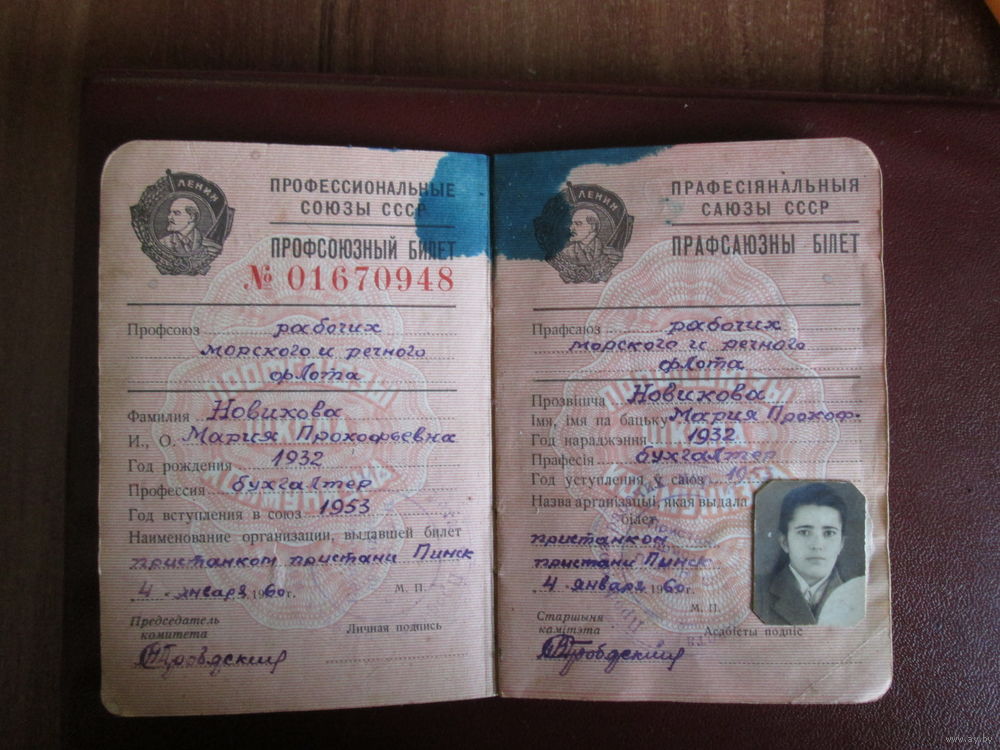 ЛЕНИН
ПРОФЕССИОНАЛЬНЫЕ
СОЮЗЫ СССР
ПРОФСОЮЗНЫЙ БИЛЕТ
№ 01670948
Профсоюз рабочих
морского и речного
флота
Фамилия Новикова
И., О. Мария Прокофьевна
Год рождения 1932
Профессия бухгалтер
Год вступления в союз 1953
Наименование организации, выдавшей билет
пристанком пристани Пинск
4 января 1960 г.
М. П.
Председатель
комитета
Личная подпись
ЛЕНИН
ПРАФЕСІЯНАЛЬНЫЯ
САЮЗЫ СССР
ПРАФСАЮЗНЫ БІЛЕТ
Прафсаюз рабочих
морского и речного
флота
Прозвішча Новикова
Імя, імя па бацьку Мария Прокоф.
Год нараджэння 1932
Прафесія бухгалтер
Год уступлення у саюз 1953
Назва арганізацыі, якая выдала
білет
пристанком
пристани Пинск
4 января 1960 г.
М. П.
Старшыня
камітэта
Асабісты подпіс
www.ay.by